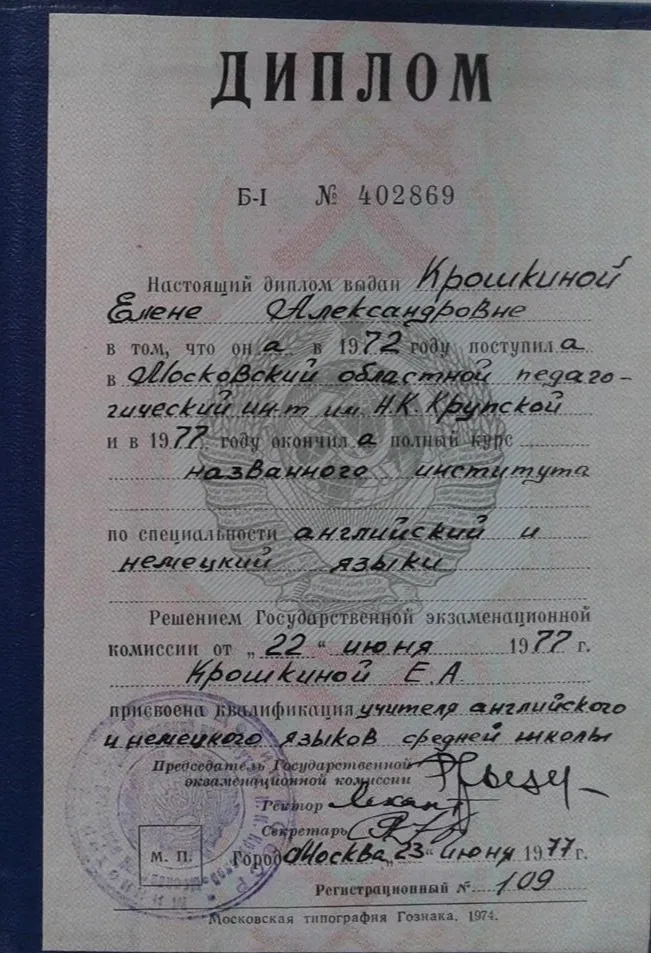 ДИПЛОМ
Б-I № 402869
Настоящий диплом выдан Крошкиной
Елене Александровне
в том, что он а в 1972 году поступил а
в Московский областной педаго-
гический ин.т им. Н.К. Крупской
и в 1977 году окончил а полный курс
названного института
по специальности английский и
немецкий языки
Решением Государственной экзаменационной
комиссии от „22“ июня 1977 г.
Крошкиной Е.А
присвоена квалификация учителя английского
и немецкого языков средней школы
Председатель Государственной
экзаменационной комиссии
Ректор Лекант
Секретарь
М. П. Город Москва „23“ июня 1977 г.
Регистрационный № 109
Московская типография Гознака. 1974.